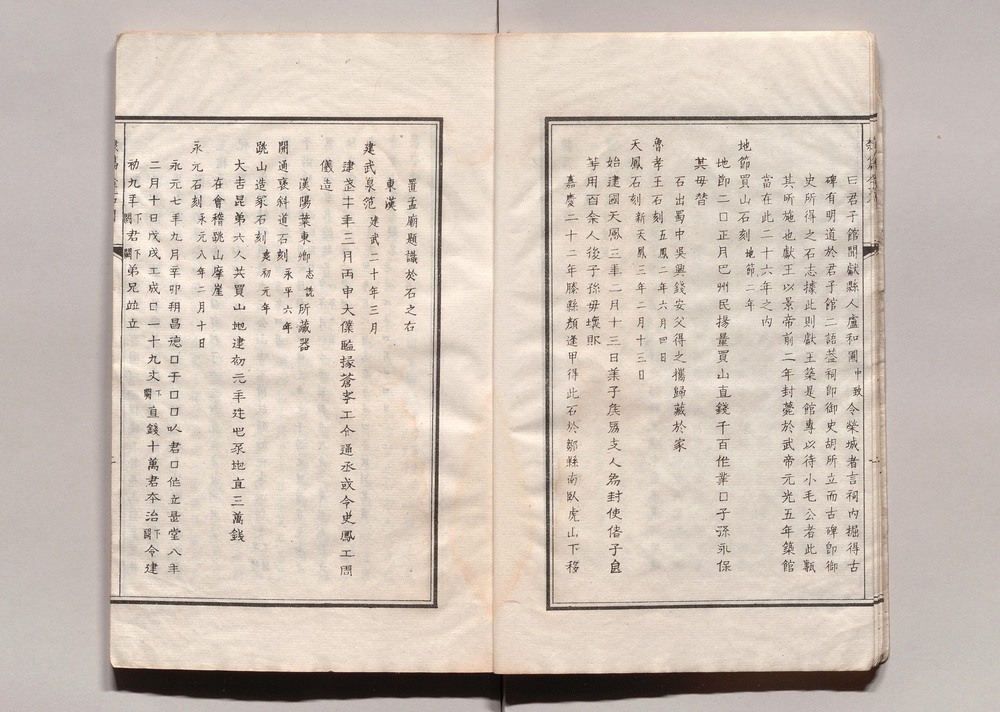 曰君子館開獻縣人盧和圃中致令榮城者言祠内掘得古
碑有明道於君子館二語蓋祠即御史胡所立而古碑即御
史所得之石志據此則獻王築是館專以待小毛公者此甎
其所施也獻王以景帝前二年封薨於武帝元光五年築館
當在此二十六年之内
地節買山石刻地節二年
地節二口正月巴州民揚量買山直錢千百作業口子孫永保
其毋替
石出蜀中吳興錢安父得之攜歸藏於家
魯孝王石刻五鳳二年六月四日
天鳳石刻新天鳳三年二月十三日
始建國天鳳三年二月十三日萊子侯爲支人爲封使偖子食
等用百余人後子孫毋壞敗
嘉慶二十二年滕縣顏逢甲得此石於鄒縣南臥虎山下移
置孟廟題識於石之右
東漢
建武泉范建武二十年三月
建武 年三月丙申大僕監掾蒼考工令通丞或令史鳳工周
儀造
漢陽葉東卿志詵所藏器
開通褒斜道石刻永平六年
跳山造冢石刻建初元年
大吉昆弟六人共買山地建初元年造此冢地直三萬錢
在會稽跳山摩崖
永元石刻永元八年二月十日
永元七年九月辛卯朔昌德口于口口以君口作立 堂八年
二月十日戊戌工成口一十九丈下闕直錢十萬君本治下闕令建
初九年下闕君下闕弟兄竝立